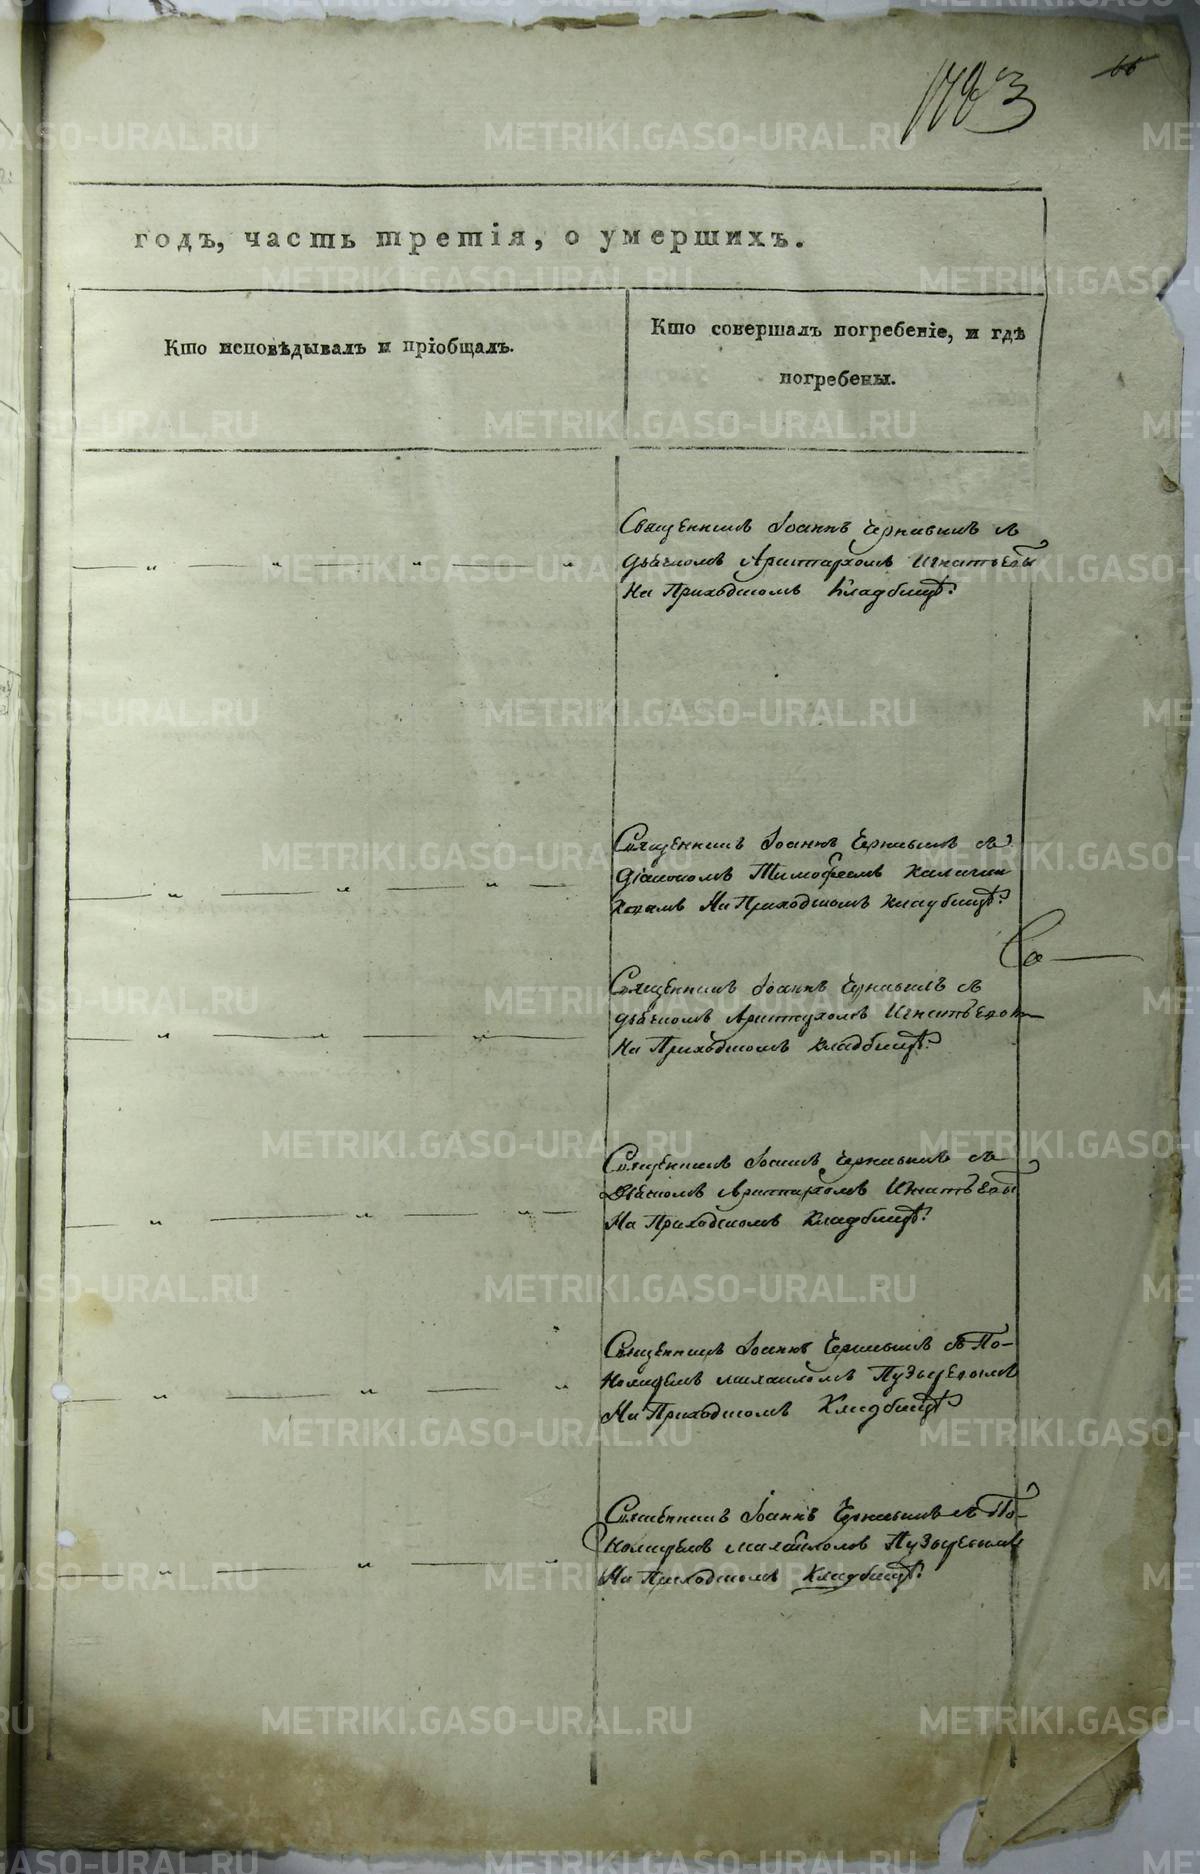 1783
66
годъ, часть третія, о умершихъ.
Кто исповѣдывалъ и пріобщалъ.
Кто совершалъ погребеніе, и гдѣ
погребены.
Священникъ Іоаннъ съ
дьячкомъ Аристархомъ Игнатьевы
На Приходскомъ Кладбищѣ.
Священникъ Іоаннъ съ
Діакономъ Тимофеемъ Калачни
ковамъ На Приходскомъ Кладбищѣ.
Священникъ Іоаннъ съ
дьячкомъ Аристархомъ Игнатьевом
На Приходскомъ Кладбищѣ.
Священникъ Іоаннъ съ
Дьячкомъ Аристархомъ Игнатьевы
На Приходскомъ Кладбищѣ.
Священникъ Іоаннъ съ По-
номаремъ михаиломъ Пузыревымъ
На Приходскомъ Кладбищѣ
Священникъ Іоаннъ съ По-
номаремъ михайломъ Пузыревымъ
На Приходскомъ Кладбищѣ.
METRIKI.GASO-URAL.RU